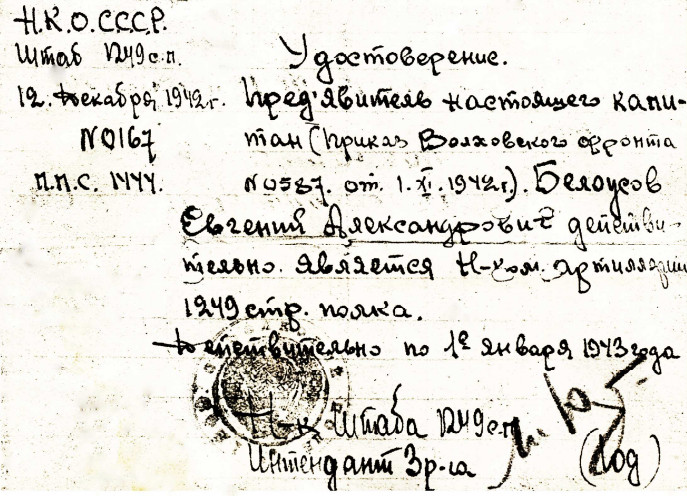 Н.К.О.С.С.С.Р.
Штаб 1249 с.п.
12. декабря 1942 г.
№ 0167
п.п.с. 1444.
Удостоверение.
Пред'явитель настоящего капи-
тан (приказ Волховского фронта
№ 0587. от. 1. XI. 1942 г.). Белоусов
Евгений Александрович действи-
тельно. является Н-ком. артиллерии
1249 стр. полка.
Действительно по 1е января 1943 года
Н-к Штаба 1249 с.п.
Интендант 3 р-га